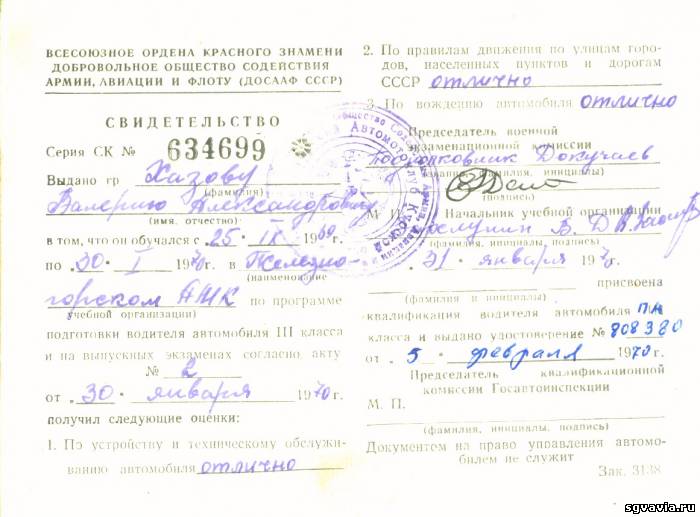 ВСЕСОЮЗНОЕ ОРДЕНА КРАСНОГО ЗНАМЕНИ
ДОБРОВОЛЬНОЕ ОБЩЕСТВО СОДЕЙСТВИЯ
АРМИИ, АВИАЦИИ И ФЛОТУ (ДОСААФ СССР)
СВИДЕТЕЛЬСТВО
Серия СК № 634699
Выдано гр Хазову
(фамилия)
Валерию Александровичу
(имя, отчество)
в том, что он обучался с „25" IX 1969г.
по „30" I 1970г. в Железно-
(наименование
горском АМК по программе
учебной организации)
подготовки водителя автомобиля III класса
и на выпускных экзаменах согласно акту
№ 2
от „30" января 1970г.
получил следующие оценки:
1. По устройству и техническому обслужи-
ванию автомобиля отлично
2. По правилам движения по улицам горо-
дов, населенных пунктов и дорогам
СССР отлично
3. По вождению автомобиля отлично
Председатель военной
экзаменационной комиссии
Подполковник Докучаев
(звание, фамилия, инициалы)
(подпись)
М. П. Начальник учебной организации
(фамилия, инициалы, подпись)
„31" января 1970г.
присвоена
(фамилия и инициалы)
квалификация водителя автомобиля
класса и выдано удостоверение № 808380
от „5" февраля 1970г.
Председатель квалификационной
комиссии Госавтоинспекции
М. П.
(фамилия, инициалы, подпись)
Документом на право управления автомо-
билем не служит
Зак. 3138
sgvavia.ru